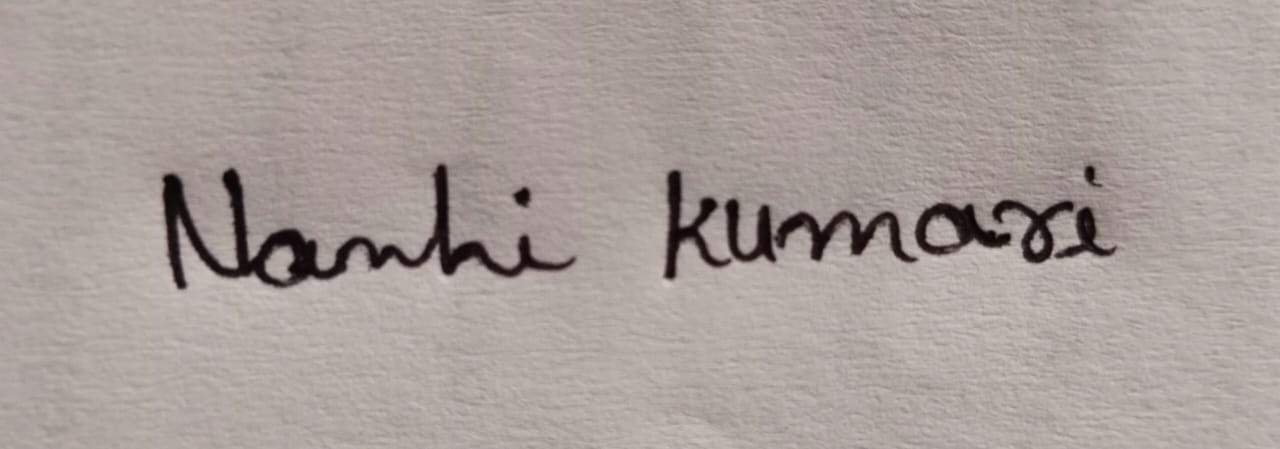 Nanhi kumari